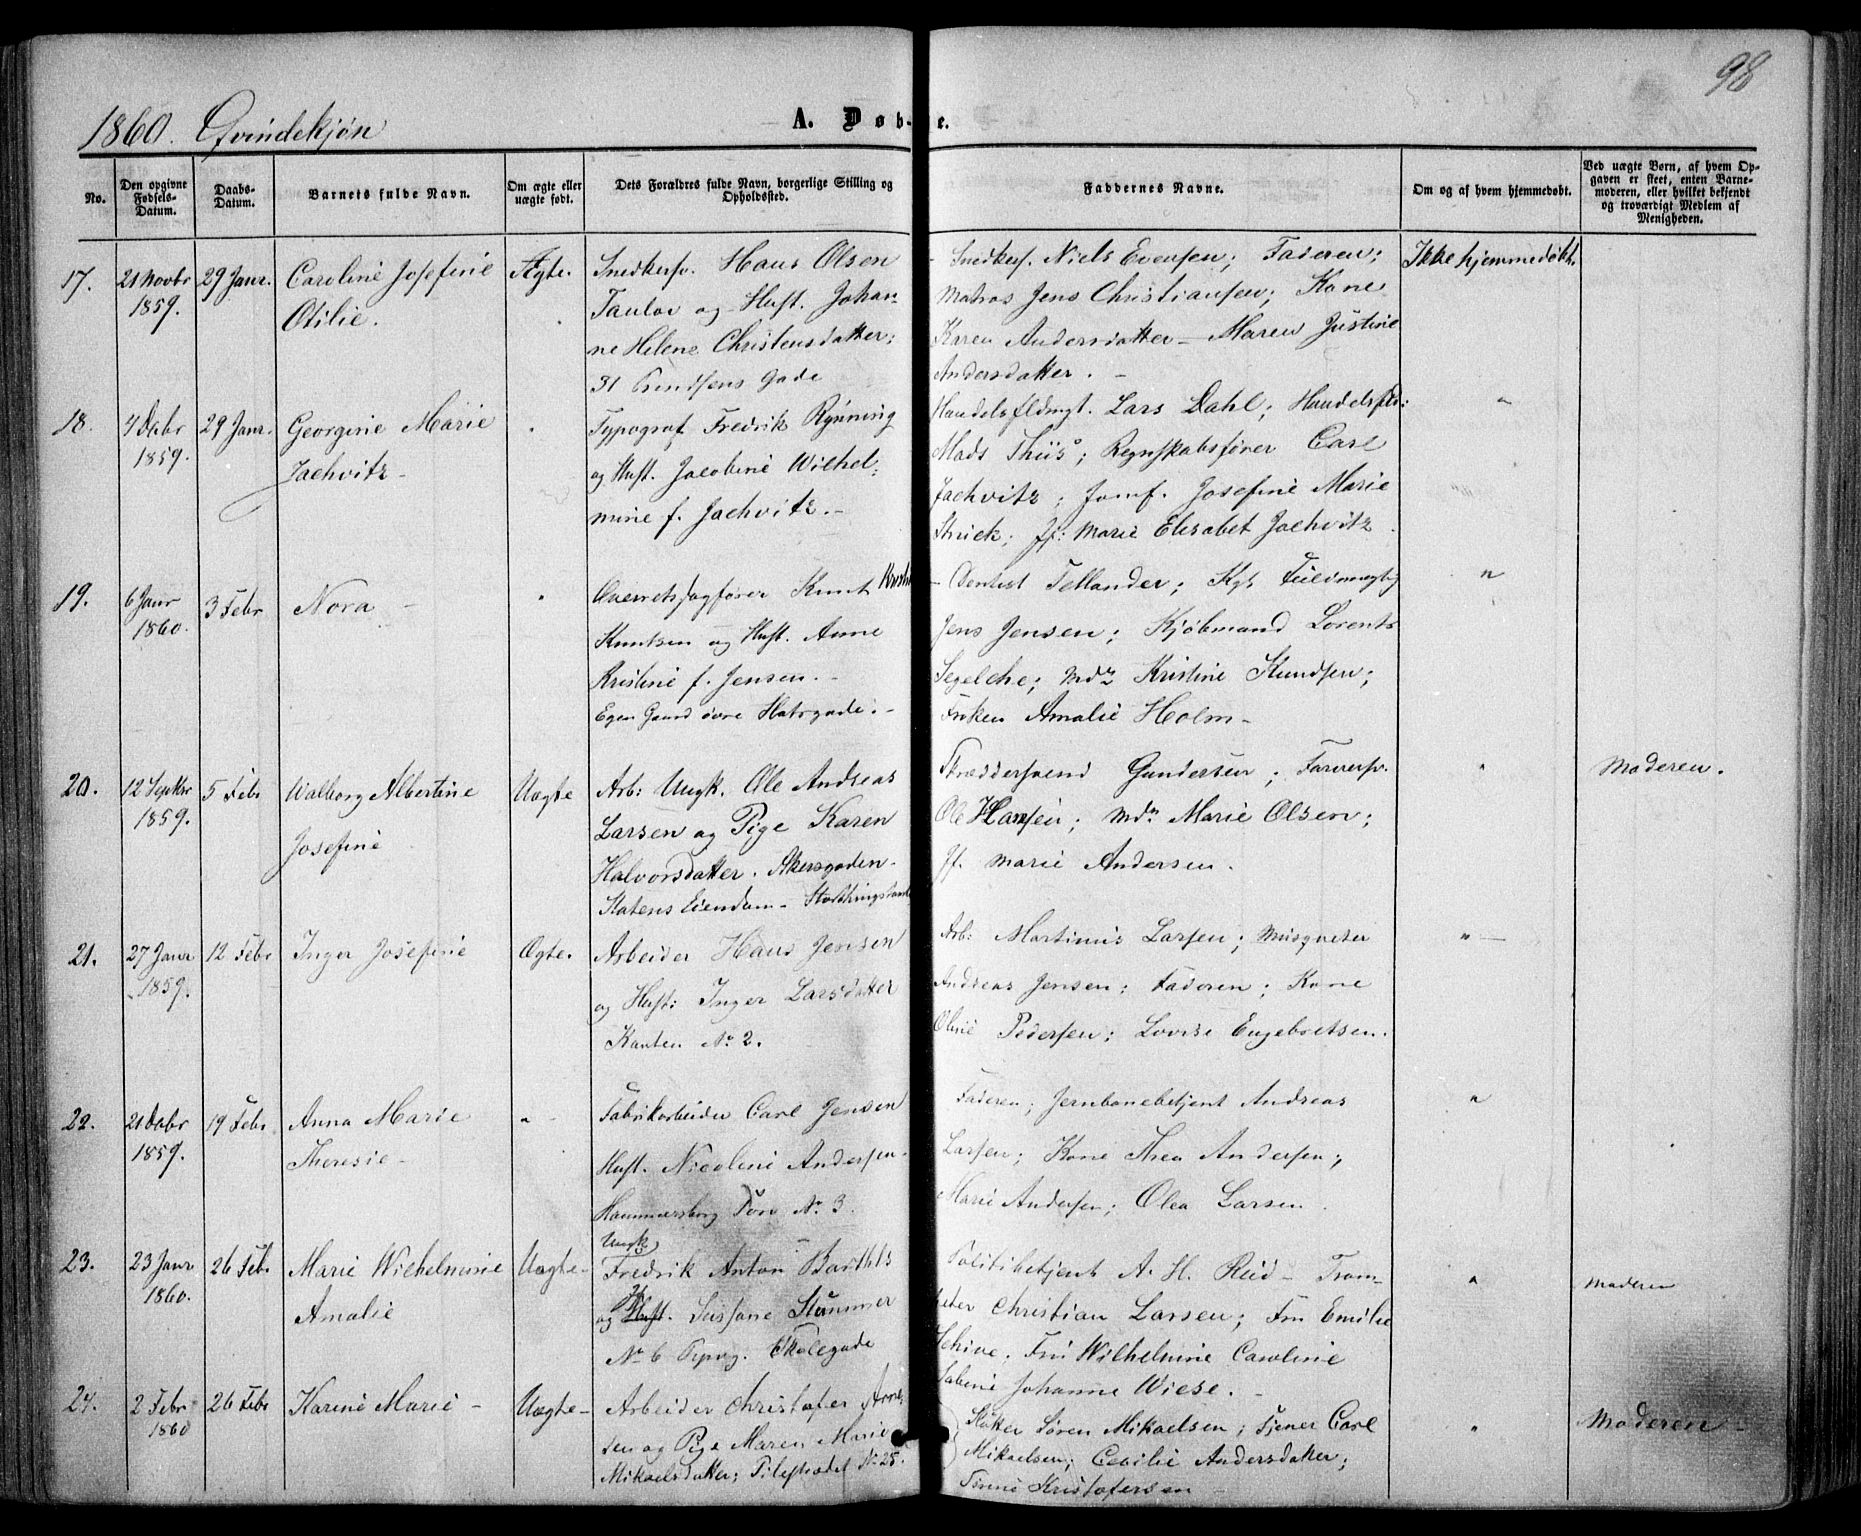 98
1860. Qvindekjøn
A. Døb- te.
No.
Den opgivne Fødsels-Datum.
Daabs-Datum.
Barnets fulde Navn.
Om ægte eller uægte født.
Dets Forældres fulde Navn, borgerlige Stilling og Opholdssted.
Faddernes Navne.
Om og af hvem hjemmedøbt.
Ved uægte Børn, af hvem Opgaven er skeet, enten Barnemoderen, eller hvilket bekjendt og troværdigt Medlem af Menigheden.
17. 21 Novbr 1859. 29 Janr. Caroline Josefine Otilie. Ægte.
Snedkersv. Hans Olsen
Taulov og Hust. Johan-
ne Helene Christensdatter;
31 Prindsens Gade
Snedkers. Niels Evensen; Faderen;
Matros Jens Christiansen; Kone
Karen Andersdatter - Maren Justine
Andersdatter. -
Ikke hjemmedøbt.
18. 4 Dcbr 1859. 29 Janr. Georgine Marie Jachvitz - "
Typograf Fredrik Rynning
og Hust. Jacobine Wilhel-
mine f. Jachvitz. -
Handelsfldmgt. Lars Dahl; Handelsfld:
Mads Thiis; Regnskabsfører Carl
Jachvitz; Jomf. Josefine Marie
Struck; Jf: Marie Elisabet Jachvitz
"
19. 6 Janr 1860. 3 Febr Nora - "
Overretssagfører Knut
Knutsen og Hust. Anne
Kristine f. Jensen. -
Egen Gaard øvre Slotsgade. -
- Dentist Tellander; Kgs Fuldmægtig
Jens Jensen; Kjøbmand Lorents
Segelche; Mdm Kristine Knudsen;
Frøken Amalie Holm -
"
20. 12 Septbr 1859. 5 Febr Walborg Albertine Josefine Uægte
Arb: Ungk. Ole Andreas
Larsen og Pige Karen
Halvorsdatter. Akersgaden -
Statens Eiendom - Storthingstomt
Skræddersvend Gundersen; Farversv.
Ole Hansen; Mdm Marie Olsen;
Jf. Marie Andersen.
"
Moderen.
21. 27 Janr 1859. 12 Febr Inger Josefine Ægte.
Arbeider Hans Jensen
og Hust: Inger Larsdatter
Kanten No 2.
Arb: Martinus Larsen; Musqueter
Andreas Jensen; Faderen; Kone
Oline Pedersen; Lovise Engebretsen.
" -
22. 21 Dcbr 1859. 19 Febr Anna Marie Theresie - "
Fabrikarbeider Carl Jensen
Hust. Nicoline Andersen -
Hammersborg Torv No 3.
Faderen; Jernbanebetjent Andreas
Larsen; Kone Thea Andersen;
Marie Andersen; Olea Larsen.
"
23. 23 Janr 1860. 26 Febr Marie Wilhelmine Amalie Uægte -
Ungk.
Fredrik Anton Barthls
og Hust. Susane Stümmer
No 6 Pipvg. Skolegade
Politibetjent A. H. Rud - Trom-
peter Christian Larsen; Fru Emilie
Schive; Fru Wilhelmine Caroline
Sabine Johanne Wiese. -
"
Moderen
24. 2 Febr 1860 26 Febr Karine Marie - Uægte -
Arbeider Christofer Arne-
sen og Pige Maren Marie
Mikaelsdatter; Pilestrædet No 25.
Støker Søren Mikaelsen; Tjener Carl
Mikaelsen; Cecilie Andersdatter;
Kristofersen -
"
Moderen -